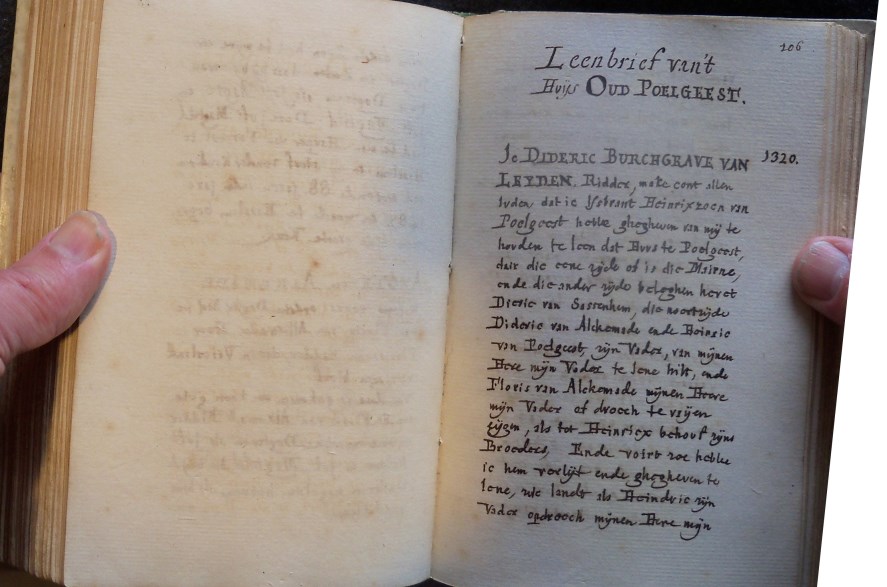 106
Leenbrief van't
Huijs OUD POELGEEST.
1320.
Ic DIDERIC BURCHGRAVE VAN
LEYDEN, Ridder, make cont allen
luden dat ic Ysbrant Heinrixzoen van
Poelgeest hebbe ghegheven van mij te
houden te leen dat Huys te Poelgeest,
dair die eene zijde of is die Mairne,
ende die ander zijde beleghen hevet
Dieric van Sassenhem, die noortzijde
Dideric van Alckemade ende Heinric
van Poelgeest, zijn Vader, van mijnen
Here mijn Vader te lene hilt, ende
Floris van Alckemade mijnen Heere
mijn Vader of drooch te vrijen
eijgen, als tot Heinricx behouf zijns
Broeders, Ende voirt zoe hebbe
ic hem verlijt ende ghegheven te
lene, landt als Heindric zijn
Vader opdrooch mijnen Here mijn